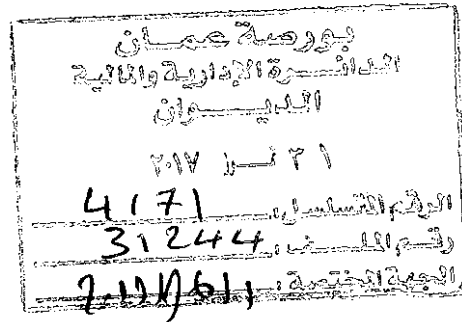 بورصة عمان
الدائرة الإدارية والمالية
الديوان
٣١ ٢٠١٧
الرقم المتسلسل: 4171
رقم الملف: 31244
الجهة المختصة: